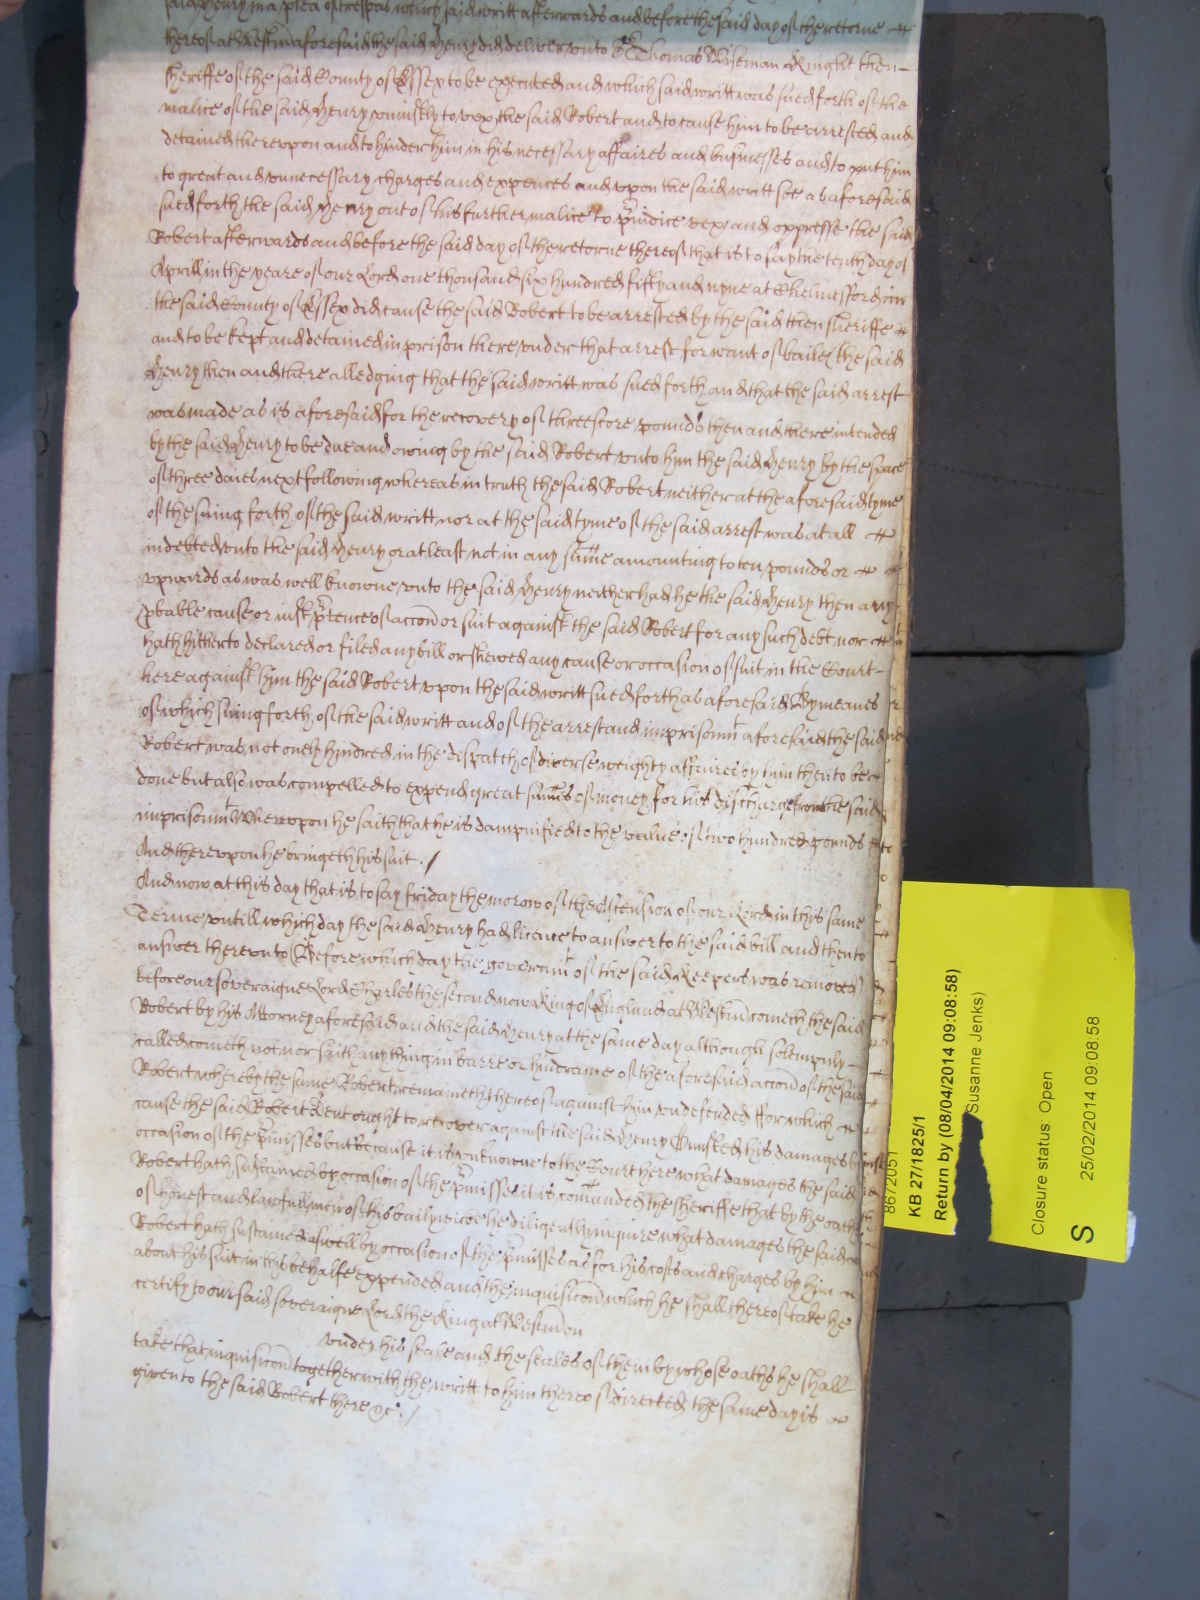 said Henry in a plea of trespas which said writt afterwards and before the said day of the retorne
thereof at Westm aforesaid the said Henry did deliver unto Sr Thomas Wiseman Knight then
Sheriffe of the said County of Essex to be executed and which said writt was sued forth of the
malice of the said Henry uniustly to vex the said Robert and to cause him to be arrested and
detained thereupon and to hinder him in his necessary affaires and businesses and to put him
to great and unnecessary charges and expences and upon the said writt soe as aforesaid
sued forth the said Henry out of his further malice to preiudice vex and oppresse the said
Robert afterwards and before the said day of the retorne thereof that is to say the tenth day of
Aprill in the yeare of our Lord one thousand six hundred fifty and nyne at Chelmesford in
the said County of Essex did cause the said Robert to be arrested by the said then Sheriffe
and to be kept and detained in prison there under that arrest for want of baile (the said
Henry then and there alledging that the said writt was sued forth and that the said arrest
was made as is aforesaid for the recovery of threescore pounds then and there intended
by the said Henry to be due and owing by the said Robert unto him the said Henry by the space
of three daies next following whereas in truth the said Robert neither at the aforesaid tyme
of the suing forth of the said writt nor at the said tyme of the said arrest was at all
indebted unto the said Henry or at least not in any summe amounting to ten pounds or
upwards as was well knowne unto the said Henry neither had he the said Henry then any
pbable cause or iust ptence of accon or suit against the said Robert for any such debt nor
hath hitherto declared or filed any bill or shewed any cause or occasion of suit in the Court
here against him the said Robert upon the said writt sued forth as aforesaid By meanes
of which suing forth of the said writt and of the arrest and imprisonmt aforesaid the said
Robert was not onely hindred in the dispatch of diverse weighty affaires by him then to be
done but also was compelled to expend great summes of money for his discharge from the said
imprisonmt Whereupon he saith that he is dampnified to the value of two hundred pounds
And thereupon he bringeth his suit ./
And now at this day that is to say friday the morow of the Ascension of our Lord in this same
Terme untill which day the said Henry had licence to answer to the said bill and then to
answer thereunto (Before which day the governmt of the said Keepers was removed)
before our soveraigne Lord Charles the second now King of England at Westm cometh the said
Robert by his Attorney aforesaid and the said Henry at the same day although solempnly
called cometh not nor saith any thing in barre or hindrance of the aforesaid accon of the said
Robert whereby the same Robert remaineth thereof against him undefended ffor which
cause the said Robert Kent ought to recover against the said Henry his damages by
occasion of the pmisses but because it is unknowne to the Court here what damages the said
Robert hath sustained by occasion of the pmisses it is comanded the sheriffe that by the oath
of honest and lawfull men of his bailywicke he diligently inquire what damages the said
Robert hath sustained aswell by occasion of the pmisses as for his costs and charges by him
about his suit in this behalfe expended and the inquisicon which he shall thereof take he
certify to our said soveraigne Lord the King at Westm on
under his seale and the seales of them by whose oathes he shall
take that inquisicon together with the writt to him thereof directed the same day is
given to the said Robert there &c. /
8672051
KB 27/1825/1
Return by (08/04/2014 09:08:58)
Susanne Jenks)
Closure status: Open
S
25/02/2014 09:08:58